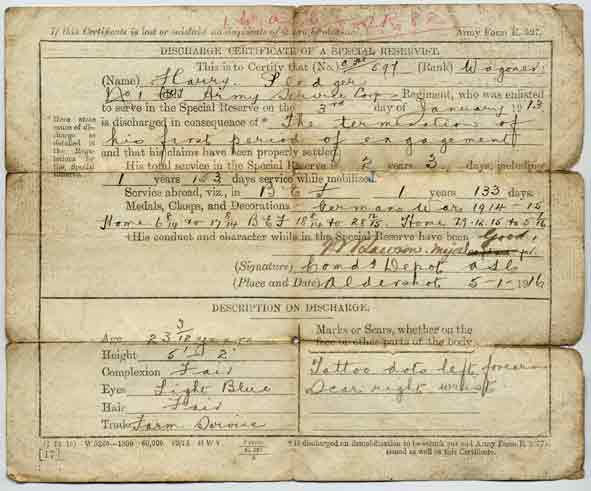 If this Certificate is lost or mislaid no duplicate of it can be obtained. Army Form E. 527.
DISCHARGE CERTIFICATE OF A SPECIAL RESERVIST.
This is to Certify that (No.) 597 (Rank) Wagoner
(Name) Harry
No 1 Army Service Corp Regiment, who was enlisted
to serve in the Special Reserve on the 3rd day of January 1913
is discharged in consequence of* The termination of
his first period of engagement
and that his claims have been properly settled.
His total service in the Special Reserve is 2 years 3 days, including
1 years 153 days service while mobilized.
Service abroad, viz., in B E F 1 years 133 days.
Medals, Clasps, and Decorations German War 1914-15
Home 6/8/14 to 17/8/14 B E F 18/8/14 to 28/12/15. Home 29.12.15 to 5/1/16
†His conduct and character while in the Special Reserve have been Good.
Lawson. Major
(Signature) Comdg Depot ASC
(Place and Date) Aldershot 5-1-1916
DESCRIPTION ON DISCHARGE.
Age 23 3/12 years
Height 5 ft 2"
Complexion Fair
Eyes Light Blue
Hair Fair
Trade Farm Service
Marks or Scars, whether on the
face or other parts of the body.
Tattoo dots left forearm
Scar right wrist
[17]
† If discharged on demobilization to be struck out and Army Form E. 577
issued as well as this Certificate.